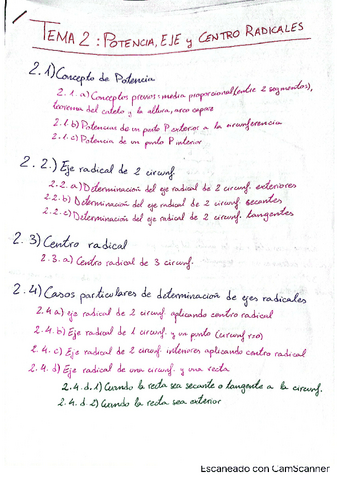 TEMA 2: POTENCIA, EJE y CENTRO RADICALES
2.1) Concepto de Potencia
2.1.a) Conceptos previos: media proporcional (entre 2 segmentos),
teorema del cateto y la altura, arco capaz
2.1.b) Potencias de un punto P exterior a la circunferencia
2.1.c) Potencia de un punto P interior
2.2.) Eje radical de 2 circunf.
2.2.a) Determinación del eje radical de 2 circunf. exteriores
2.2.b) Determinación del eje radical de 2 circunf. secantes
2.2.c) Determinación del eje radical de 2 circunf. tangentes
2.3) Centro radical
2.3.a) Centro radical de 3 circunf.
2.4) Casos particulares de determinación de ejes radicales
2.4.a) eje radical de 2 circunf aplicando centro radical
2.4.b) Eje radical de 1 circunf. y un punto (circunf r=0)
2.4.c) Eje radical de 2 circunf interiores aplicando centro radical
2.4.d) Eje radical de una circunf. y una recta
2.4.d.1) Cuando la recta sea secante o tangente a la circunf.
2.4.d.2) Cuando la recta sea exterior
Escaneado con CamScanner